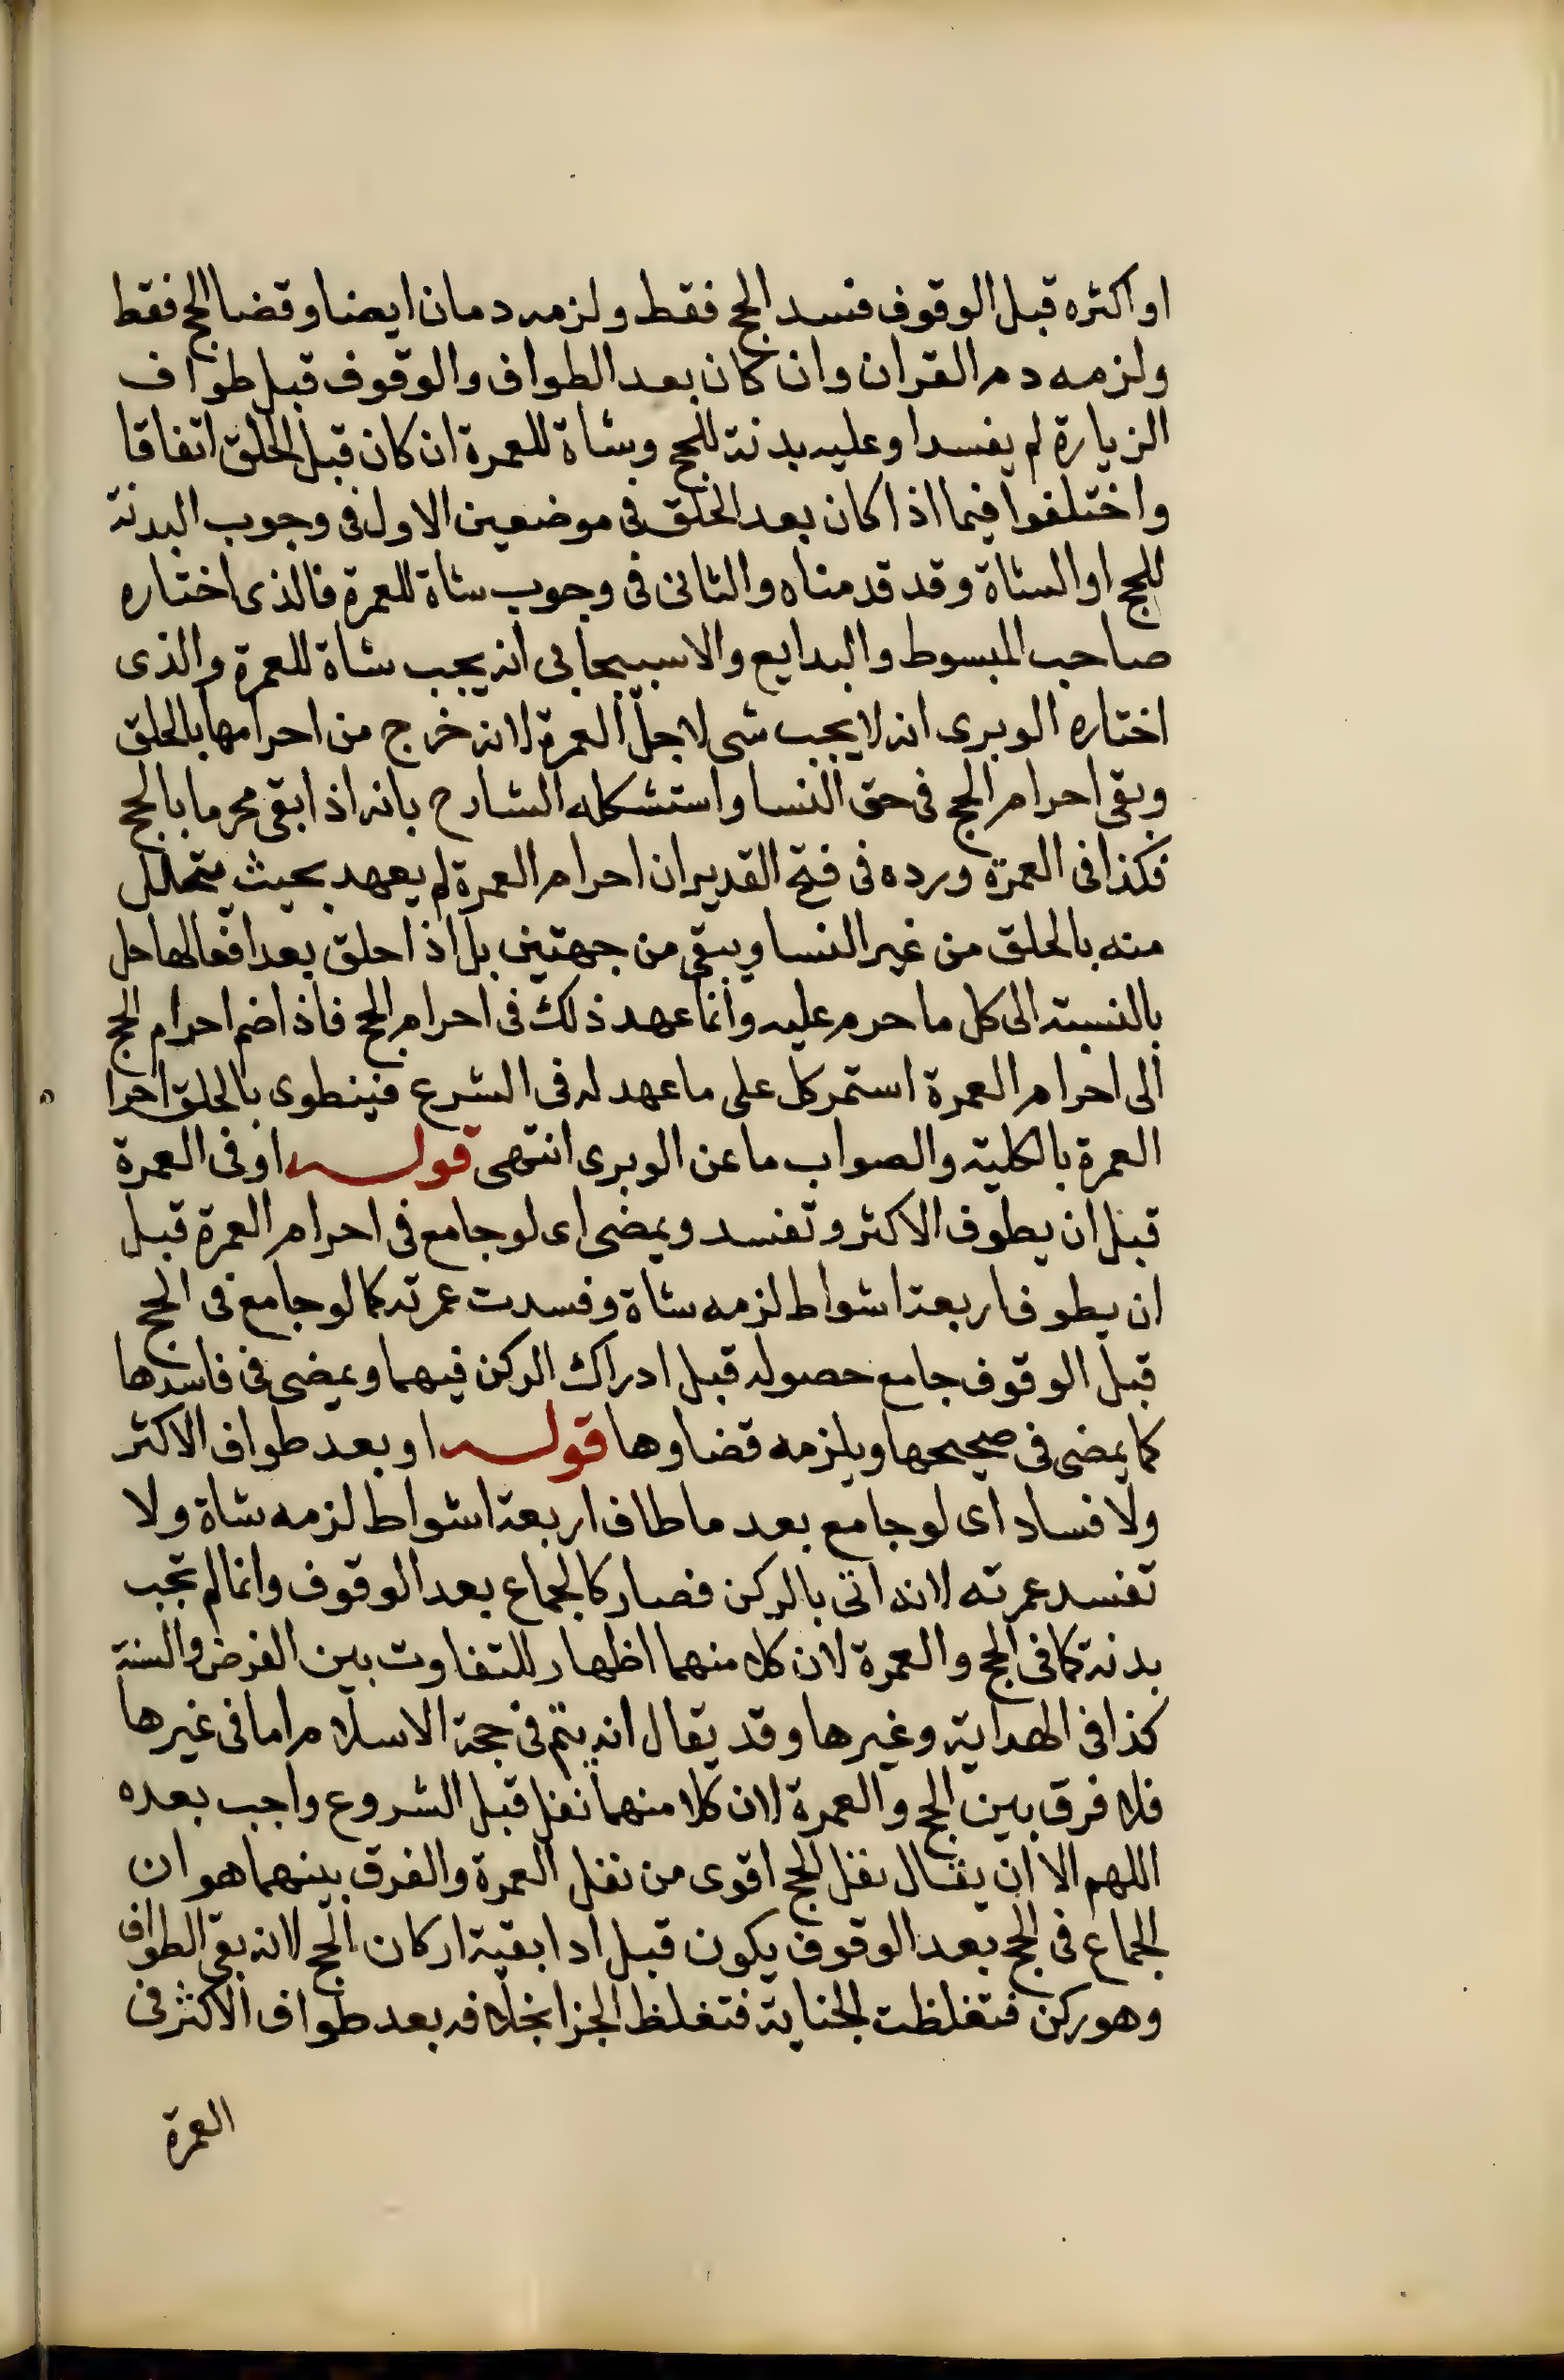 او اكثره قبل الوقوف فسد الحج فقط ولزمه دمان ايضا وقضا الحج فقط
ولزمه دم القران وان كان بعد الطواف والوقوف قبل طواف
الزيارة لم يفسدا وعليه بدنة للحج وشاة للعمرة ان كان قبل الحلق اتفاقا
واختلفوا فيما اذا كان بعد الحلق في موضعين الاول في وجوب البدنة
للحج او الشاة وقد قدمناه والثاني في وجوب شاة للعمرة فالذى اختاره
صاحب المبسوط والبدايع والاسبيجابي انه يجب شاة للعمرة والذى
اختاره الوبرى انه لا يجب شى لاجل العمرة لانه خرج من احرامها بالحلق
وبقى احرام الحج في حق النسا واستشكله الشارح بانه اذا بقى محرما بالحج
فكذا في العمرة ورده في فتح القدير ان احرام العمرة لم يعهد بحيث يتحلل
منه بالحلق من غير النسا ويبقى من جهتين بل اذا حلق بعد افعالها حل
بالنسبة الى كل ما حرم عليه وانما عهد ذلك في احرام الحج فاذا ضم احرام الحج
الى احرام العمرة استمر كل على ما عهد له في الشرع فينطوى بالحلق احرا م
العمرة بالكلية والصواب ما عن الوبرى انتهى قوله او في العمرة
قبل ان يطوف الاكثر وتفسد ويمضى اى لو جامع في احرام العمرة قبل
ان يطوف اربعة اشواط لزمه شاة وفسدت عمرته كما لو جامع في الحج
قبل الوقوف جامع حصوله قبل ادراك الركن فيهما ويمضى في فاسدها
كما يمضى في صحيحها ويلزمه قضاوها قوله او بعد طواف الاكثر
ولا فساد اى لو جامع بعد ما طاف اربعة اشواط لزمه شاة ولا
تفسد عمرته لانه اتى بالركن فصار كالجماع بعد الوقوف وانما لم تجب
بدنة كما في الحج والعمرة لان كلا منهما اظهار للتفاوت بين الفرض والسنة
كذا في الهداية وغيرها وقد يقال انه يتم في حجة الاسلام اما في غيرها
فلا فرق بين الحج والعمرة لان كلا منهما نفل قبل الشروع واجب بعده
اللهم الا ان يقال نفل الحج اقوى من نفل العمرة والفرق بينهما هو ان
الجماع في الحج بعد الوقوف يكون قبل ادا بقية اركان الحج لانه بقى الطواف
وهو ركن فتغلظت الجناية فتغلظ الجزا بخلافه بعد طواف الاكثر في
العمرة